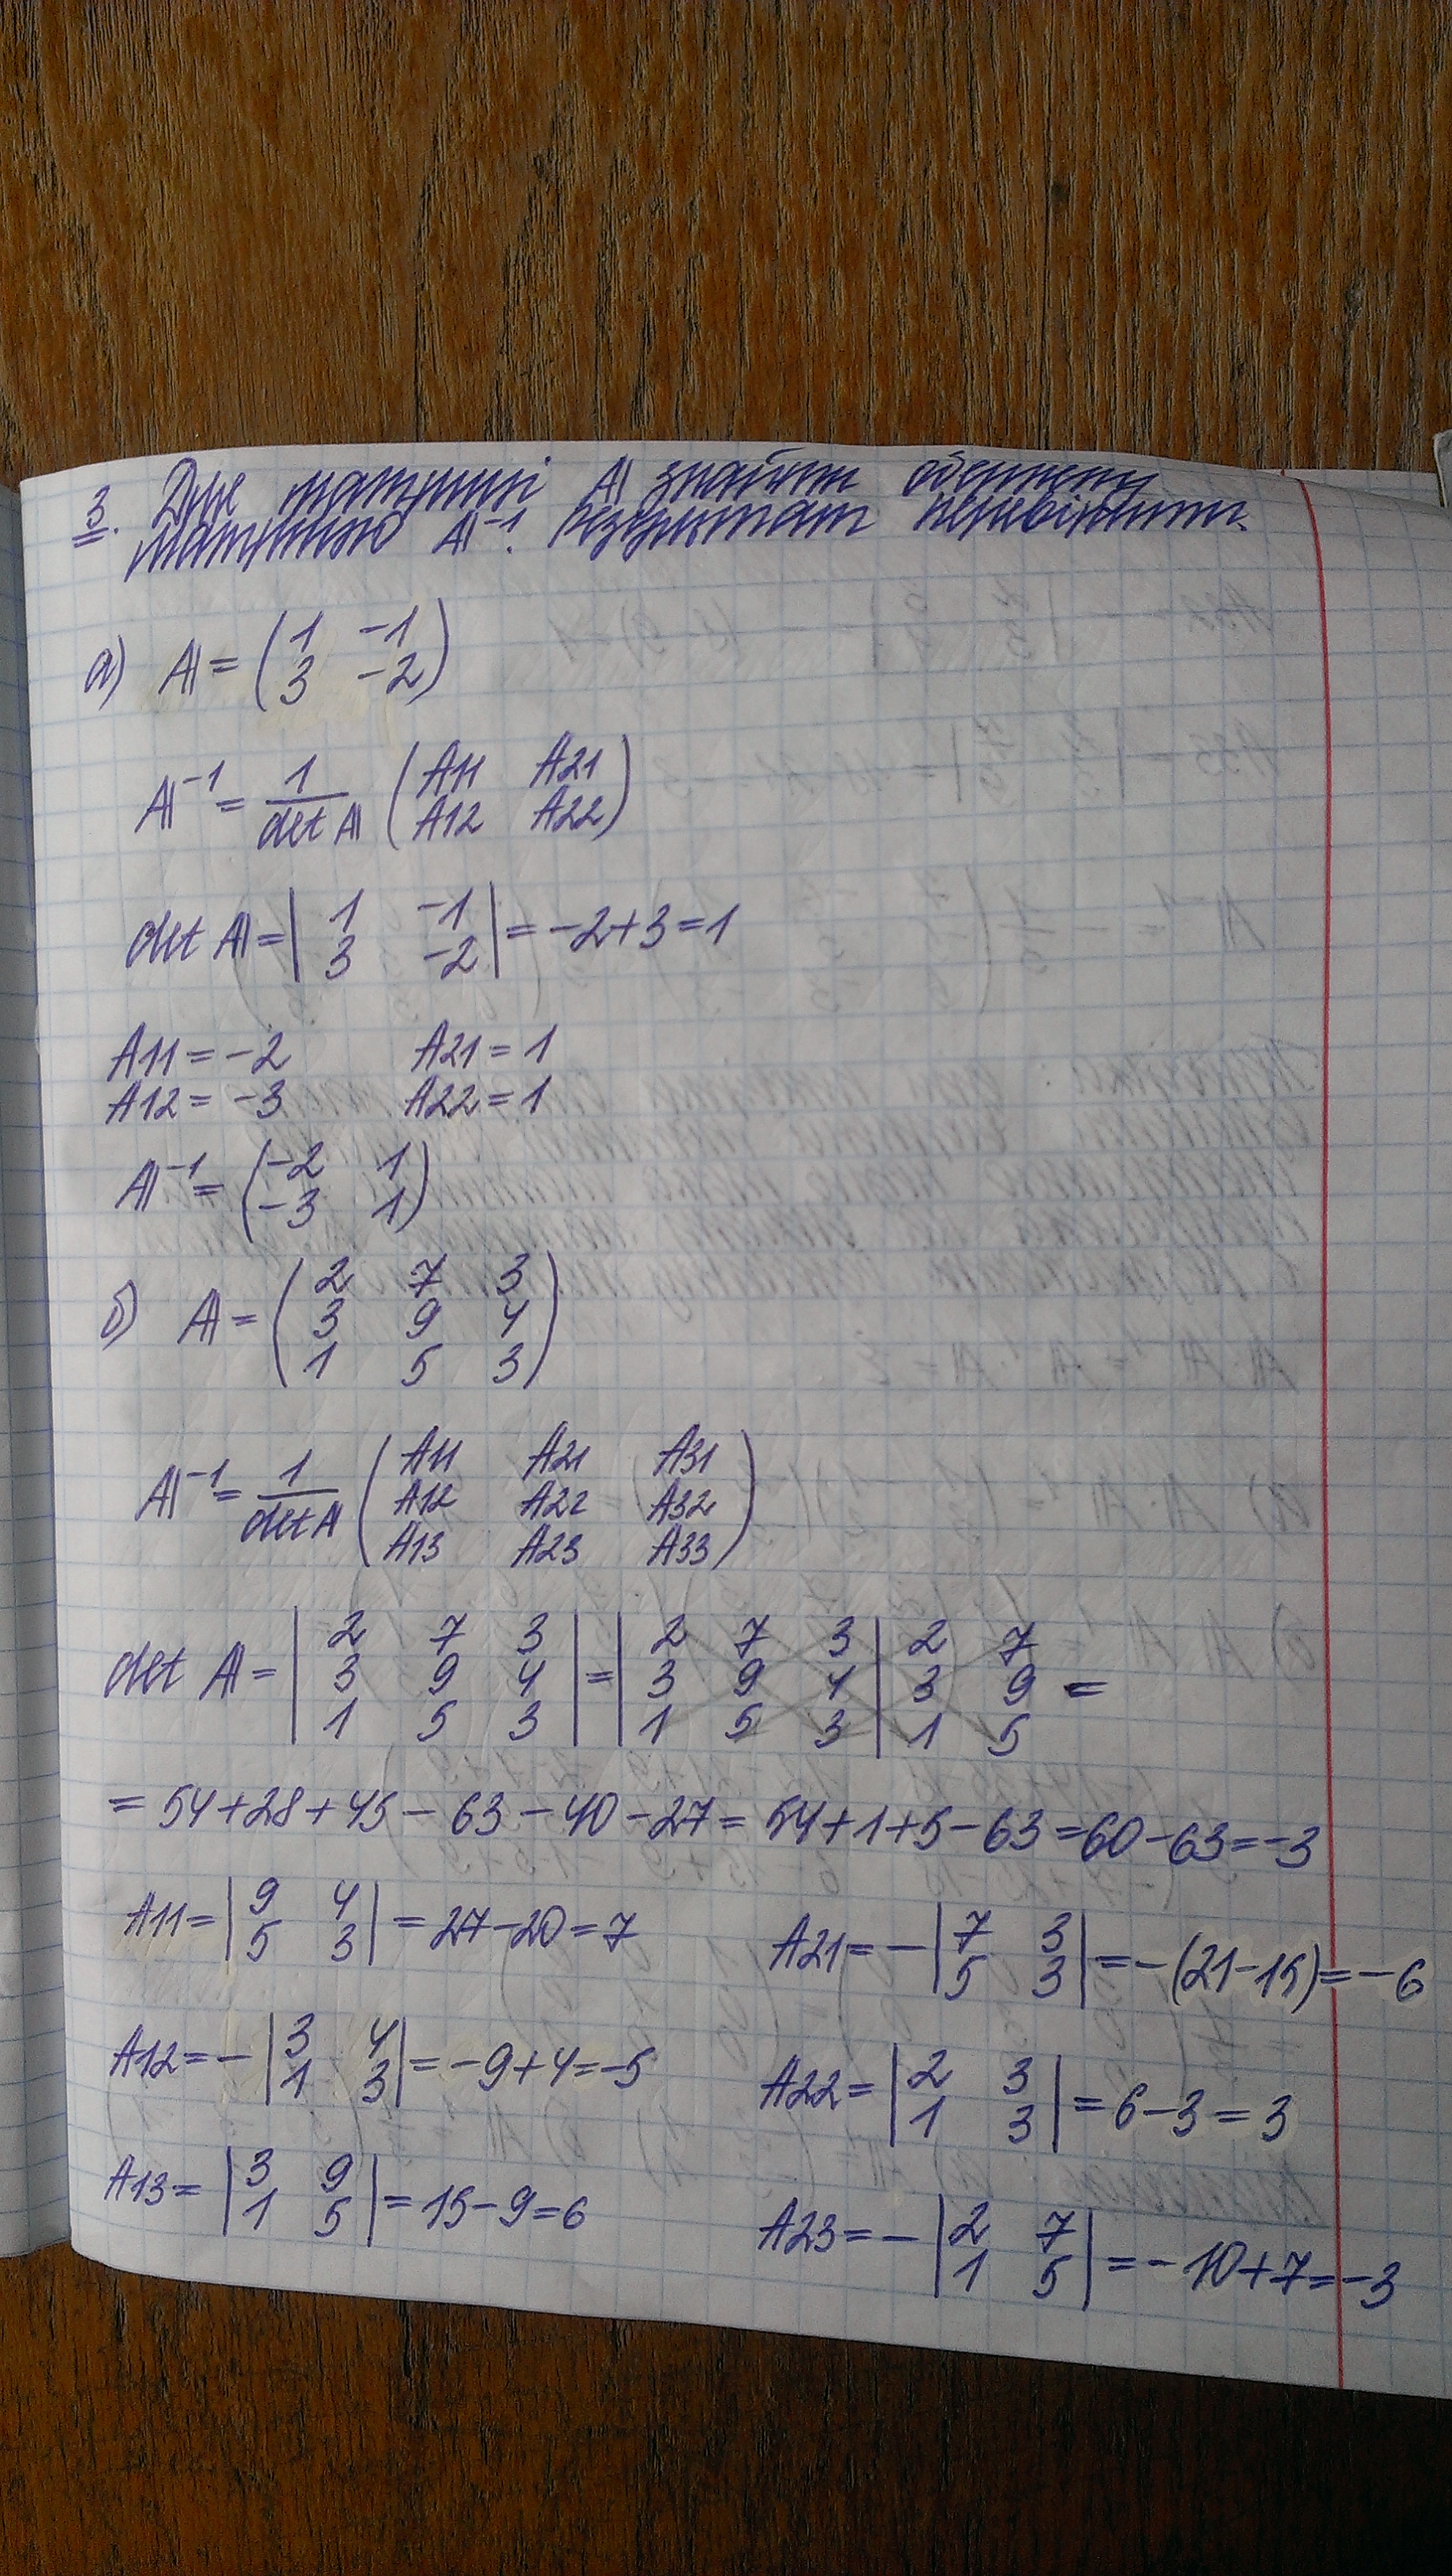 3. Для матриці A знайти обернену
матрицю A⁻¹. Результат перевірити.
а) A = (1 -1
3 -2)
A⁻¹ = 1/det A (A11 A21
A12 A22)
det A = |1 -1
3 -2| = -2+3=1
A11 = -2 A21 = 1
A12 = -3 A22 = 1
A⁻¹ = (-2 1
-3 1)
б) A = (2 7 3
3 9 4
1 5 3)
A⁻¹ = 1/det A (A11 A21 A31
A12 A22 A32
A13 A23 A33)
det A = |2 7 3| = |2 7 3| 2 7
3 9 4 3 9 4 3 9 =
1 5 3 1 5 3 1 5
= 54+28+45-63-40-27= 54+1+5-63=60-63=-3
A11= |9 4
5 3| = 27-20=7
A21= -|7 3
5 3| = -(21-15)=-6
A12= -|3 4
1 3| = -9+4=-5
A22= |2 3
1 3| = 6-3=3
A13= |3 9
1 5| = 15-9=6
A23= -|2 7
1 5| = -10+7=-3